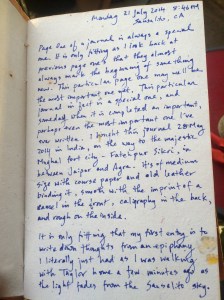 Monday 21 July 2014 8:46 PM
Sausalito, CA
Page One of a journal is always a special
one. It is only fitting as I look back at
previous page one's that they almost
always mark the beginning of something
new. This particular page one may well be
the most important one yet. This particular
journal in fact is a special one, and
someday when it is completed an important,
perhaps even the most important one I've
ever written. I bought this journal 28 May
2014 in India, on the way to the majestic
Mughal fort city - Fatehpur Sikri, in
between Jaipur and Agra. Its of medium
size with coarse paper and old leather
binding it, smooth with the imprint of a
camel in the front, caligraphy in the back,
and rough on the inside.
It is only fitting that my first entry is to
write down thoughts from an epiphany
I literally just had as I was walking
with Taylor home a few minutes ago as
the light fades from the Sausalito sky.